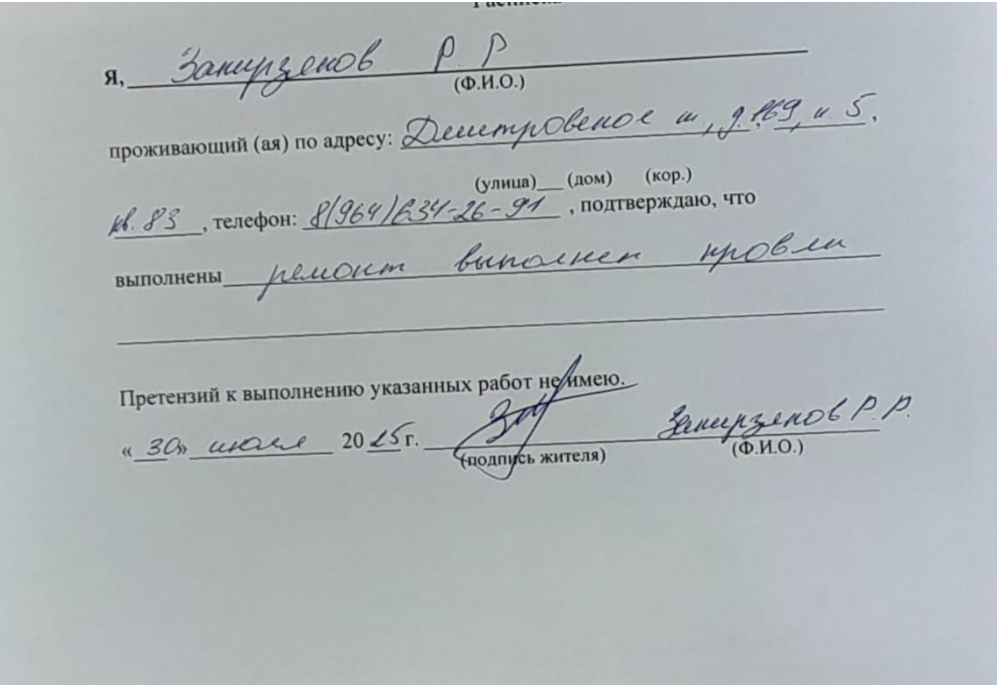 Расписка
Я, Закирзенов Р. Р
(Ф.И.О.)
проживающий (ая) по адресу: Дмитровское ш, д. 169, к 5,
(улица)___ (дом) (кор.)
кв. 83, телефон: 8(964)634-26-91, подтверждаю, что
выполнены ремонт выполнен кровли
Претензий к выполнению указанных работ не имею.
«30» июля 2025г.
(подпись жителя) Закирзенов Р. Р.
(Ф.И.О.)